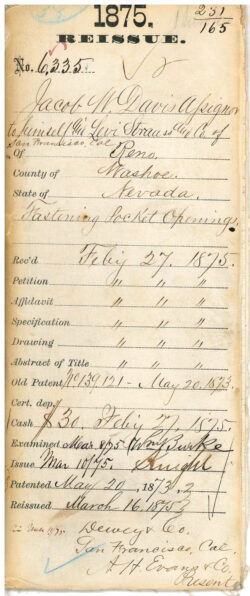 1875.
231
165
REISSUE.
No. 6,335.
Jacob W Davis Assignor
to himself and Levi Strauss and Co of
San Francisco, Cal
Of Reno,
County of Washoe.
State of Nevada.
Fastening Pocket Openings.
Rec'd Feb'y 27. 1875.
Petition " " "
Affidavit " " "
Specification " " "
Drawing " " "
Abstract of Title " " "
Old Patent No 139,121 - May 20, 1873.
Cert. dep.
Cash $30. Feb'y 27. 1875.
Examined Mar 8/75 Wm Burke
Issue Mar 10/75. Knight
Patented May 20, 1873.
Reissued March 16, 1875
1875.
Dewey & Co.
San Francisco, Cal.
A. H. Evans & Co
Present